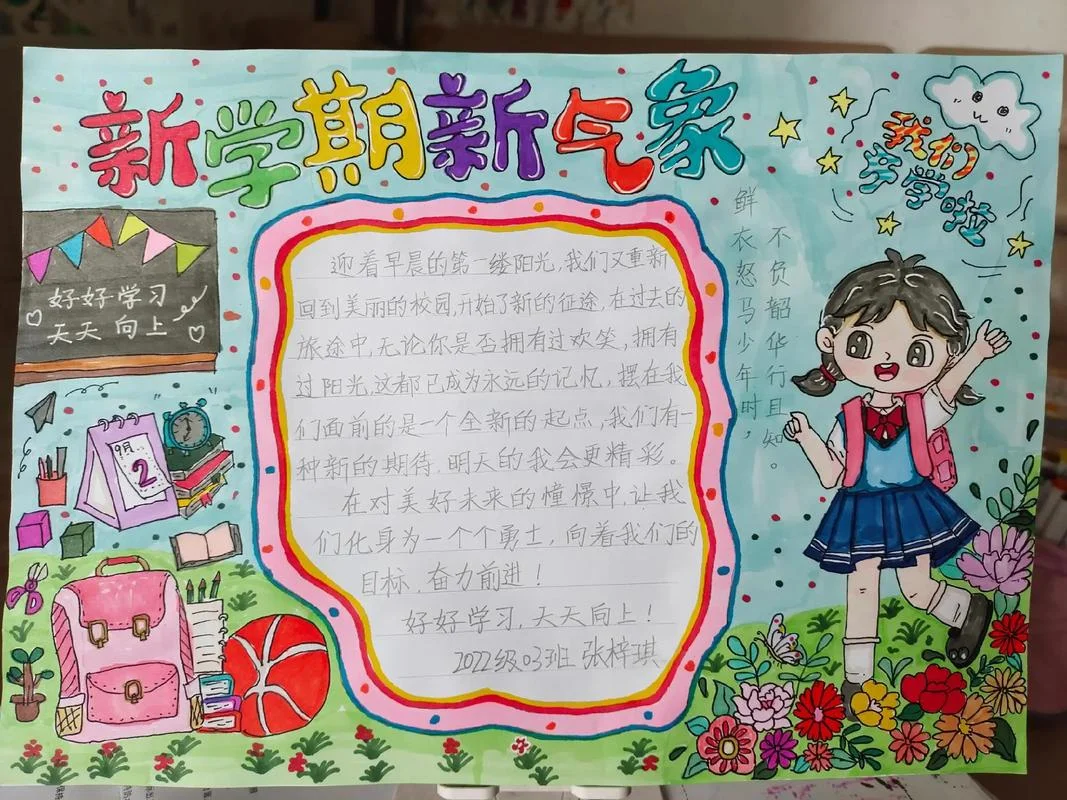 新学期新气象
我们
开学啦
鲜衣怒马少年时，
不负韶华行且知。
好好学习
天天向上
9月
2
迎着早晨的第一缕阳光,我们又重新
回到美丽的校园,开始了新的征途,在过去的
旅途中,无论你是否拥有过欢笑,拥有
过阳光,这都已成为永远的记忆,摆在我
们面前的是一个全新的起点,我们有一
种新的期待,明天的我会更精彩。
在对美好未来的憧憬中,让我
们化身为一个个勇士,向着我们的
目标,奋力前进！
好好学习,天天向上！
2022级03班 张梓琪